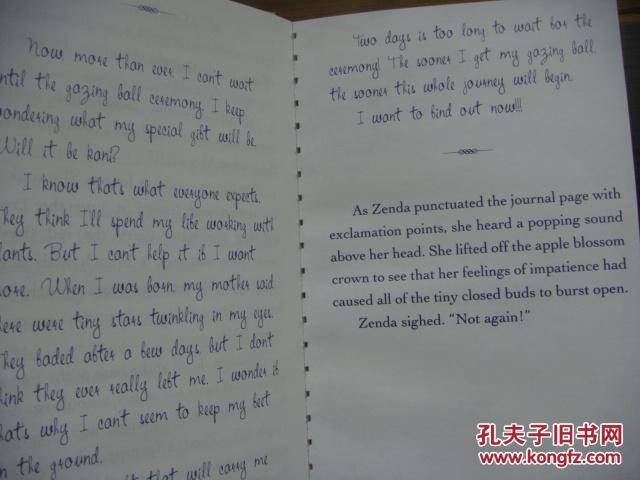 Now, more than ever, I can't wait
until the gazing ball ceremony. I keep
wondering what my special gift will be.
Will it be kani?
I know that's what everyone expects.
They think I'll spend my life working with
plants. But I can't help it if I want
more. When I was born, my mother said
there were tiny stars twinkling in my eyes.
They faded after a few days, but I don't
think they ever really left me. I wonder if
that's why I can't seem to keep my feet
on the ground.
that will carry me
Two days is too long to wait for the
ceremony! The sooner I get my gazing ball,
the sooner this whole journey will begin.
I want to find out now!!!
As Zenda punctuated the journal page with
exclamation points, she heard a popping sound
above her head. She lifted off the apple blossom
crown to see that her feelings of impatience had
caused all of the tiny closed buds to burst open.
Zenda sighed. “Not again!”
孔夫子旧书网
www.kongfz.com